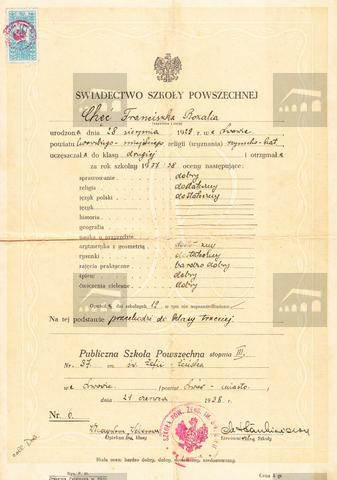 ŚWIADECTWO SZKOŁY POWSZECHNEJ
Chęć Franciszka Rozalia
urodzona dnia 28 sierpnia 1928 w e Lwowie
powiatu lwowskiego-miejskiego religii (wyznania) rzymsko-kat
uczęszczała do klasy drugiej i otrzymała
za rok szkolny 1937/38 oceny następujące:
sprawowanie dobry
religia dostateczny
język polski dostateczny
język
historia
geografia
nauka o przyrodzie
arytmetyka z geometrią
rysunki dostateczny
zajęcia praktyczne bardzo dobry
śpiew dobry
ćwiczenia cielesne dobry
dni szkolnych 12, w tym nie usprawiedliwiono
Na tej podstawie przechodzi do klasy trzeciej.
Publiczna Szkoła Powszechna stopnia III.
Nr. 37. im. św. Zofii - żeńska
w e Lwowie (powiat Lwów - miasto)
dnia 21 czerwca 1938.
Nr. 6.
Opiekun kl. klasy
Kierownik Szkoły
Skala ocen: bardzo dobry, dobry, dostateczny, niedostateczny.